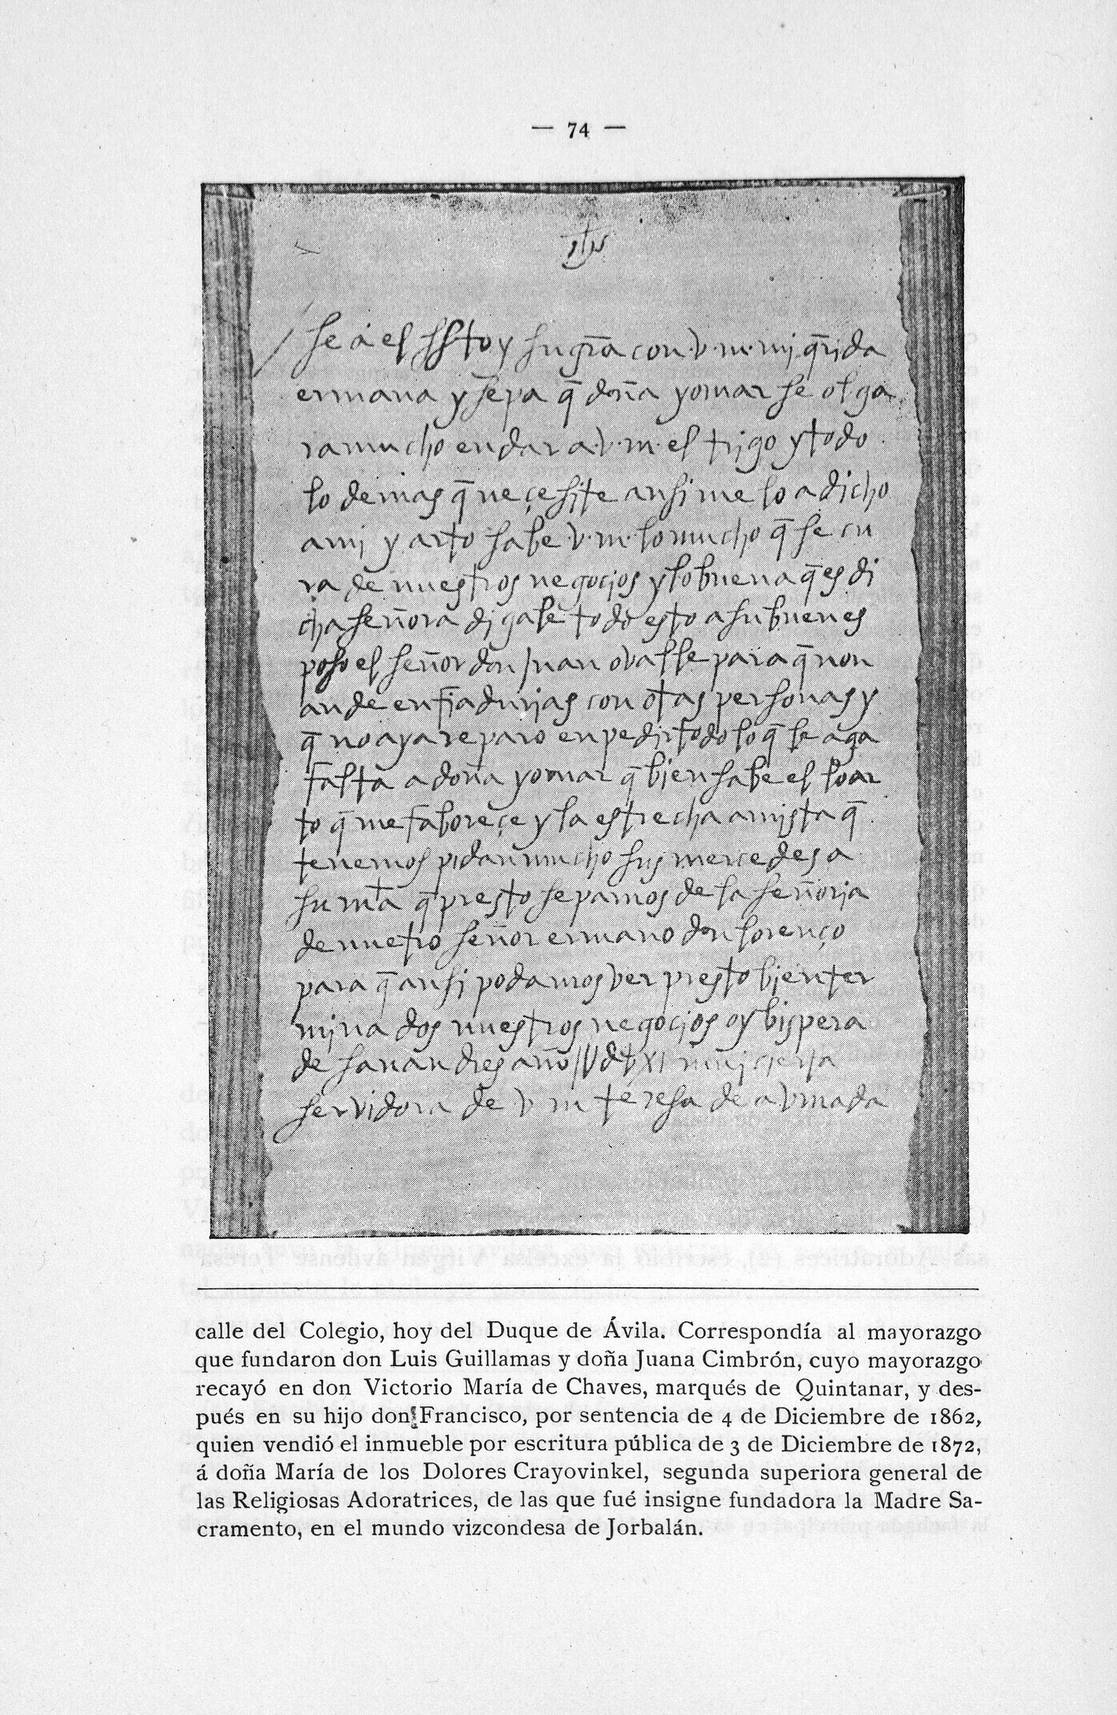 — 74 —
jhs
se a el ssto y su gr̄a con v. m. mi q̄rida
ermana y sepa q̄ doña yomar se olga
ra mucho en dar a. v. m. el trigo y todo
lo demas q̄ neçesite ansi me lo a dicho
a mi y arto sabe v. m. lo mucho q̄ se cu
ra de nuestros negocios y lo buena q̄ es di
cha señora digale todo esto a su buen es
poso el señor don Juan ovalle para q̄ non
ande en fiadurias con otas personas y
q̄ no aya reparo en pedir todo lo q̄ le aga
falta a doña yomar q̄ bien sabe el lo ar
to q̄ me faboreçe y la estrecha amista q̄
tenemos pidan mucho sus mercedes a
su mt̄a q̄ presto sepamos de la señoria
de nuetro señor ermano don lorenço
para q̄ ansi podamos ver presto bien ter
minados nuestros negocios oy bispera
de san andres año
servidora de v m teresa de avmada
calle del Colegio, hoy del Duque de Ávila. Correspondía al mayorazgo
que fundaron don Luis Guillamas y doña Juana Cimbrón, cuyo mayorazgo
recayó en don Victorio María de Chaves, marqués de Quintanar, y des-
pués en su hijo don Francisco, por sentencia de 4 de Diciembre de 1862,
quien vendió el inmueble por escritura pública de 3 de Diciembre de 1872,
á doña María de los Dolores Crayovinkel, segunda superiora general de
las Religiosas Adoratrices, de las que fué insigne fundadora la Madre Sa-
cramento, en el mundo vizcondesa de Jorbalán.